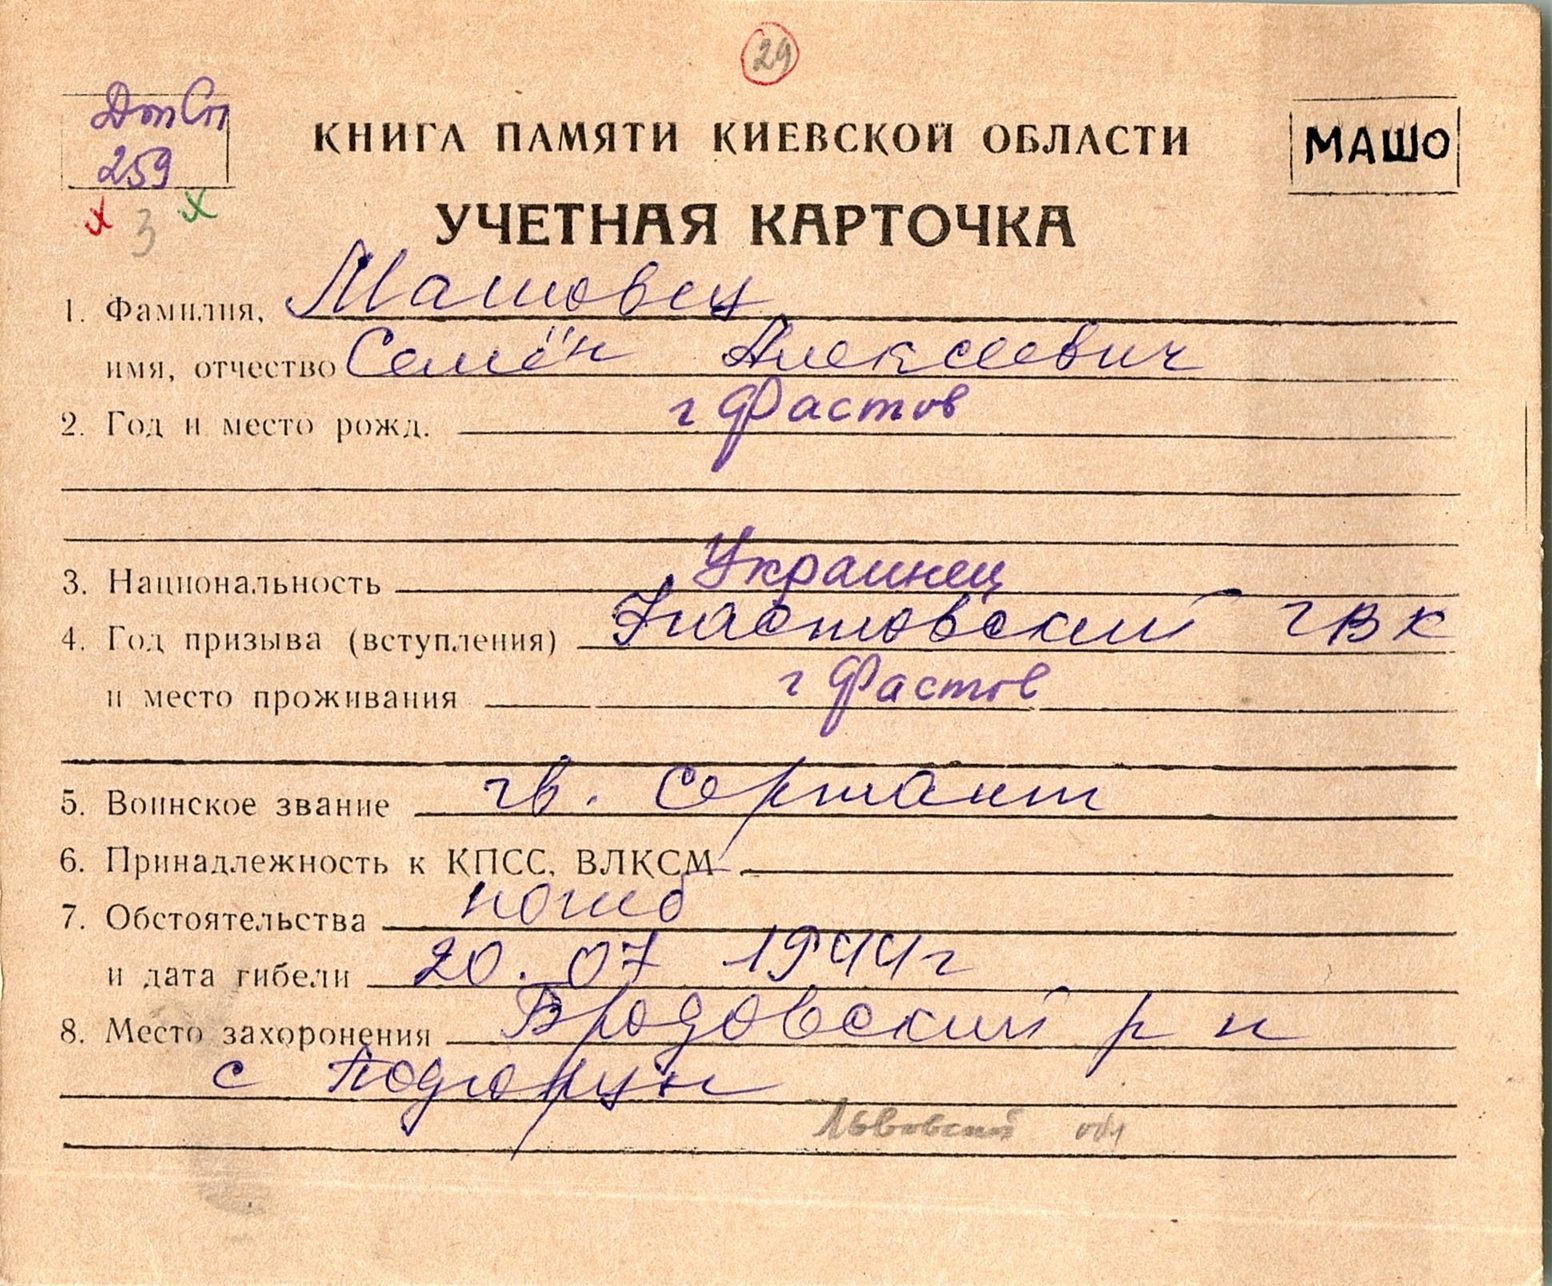 29
ДопСп
259
КНИГА ПАМЯТИ КИЕВСКОЙ ОБЛАСТИ
МАШО
х 3 х
УЧЕТНАЯ КАРТОЧКА
1. Фамилия, Машовец
имя, отчество Семён Алексеевич
2. Год и место рожд. г Фастов
3. Национальность Украинец
4. Год призыва (вступления) Фастовский ГВК
и место проживания г Фастов
5. Воинское звание гв. сержант
6. Принадлежность к КПСС, ВЛКСМ
7. Обстоятельства погиб
и дата гибели 20.07 1944г
8. Место захоронения Бродовский р н
с Подгорцы
Львовской обл